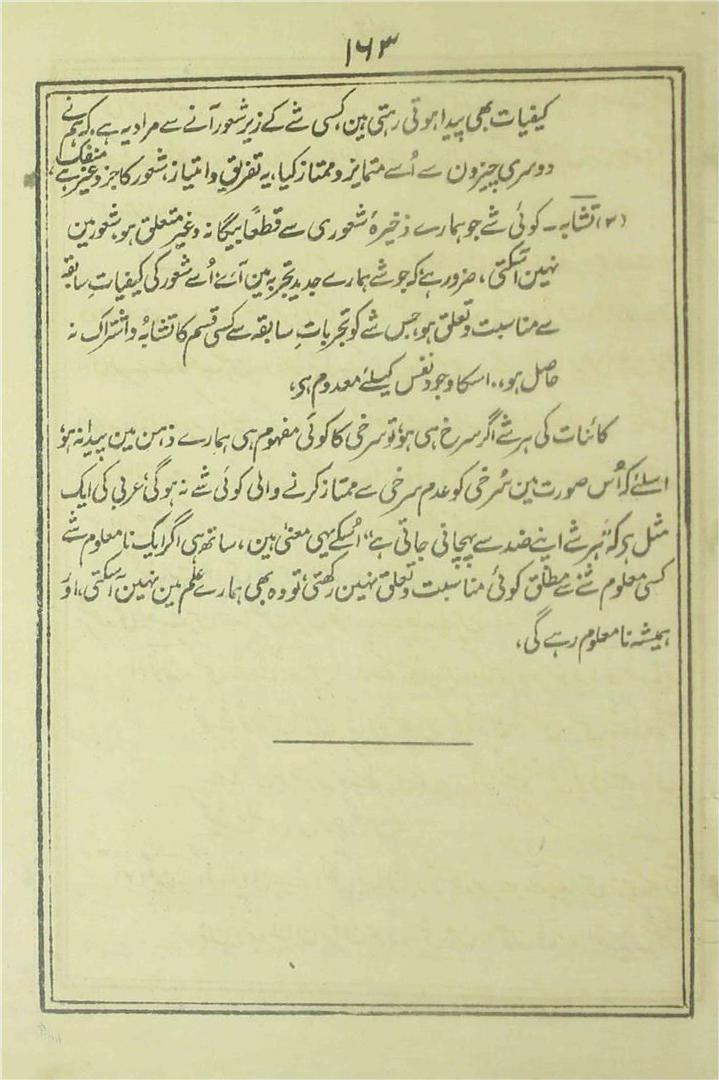 ۱۶۳
کیفیات بھی پیدا ہوتی رہتی ہین، کسی شے کے زیر شعور آنے سے مراد یہ ہے، کہ ہم نے
دوسری چیزون سے اُسے متمایز و ممتاز کیا، یہ تفریق و امتیاز، شعور کا جزو غیر منفک ہے،
(۲) تشابہ ۔ کوئی شے جو ہمارے ذخیرۂ شعوری سے قطعاً بیگانہ و غیر متعلق ہو، شعور مین
نہین آسکتی، ضرور ہے کہ جو شے ہمارے جدید تجربہ مین آئے اُسے شعور کی کیفیات سابقہ
سے مناسبت و تعلق ہو، جس شے کو تجربات سابقہ سے کسی قسم کا تشابہ و اشتراک نہ
حاصل ہو، اسکا وجود نفس کیلئے معدوم ہی،
کائنات کی ہر شے اگر سرخ ہی ہو، تو سرخی کا کوئی مفہوم ہی ہمارے ذہن مین پیدا نہ ہو
اسلئے کہ اُس صورت مین سُرخی کو عدم سرخی سے ممتاز کرنے والی کوئی شے نہ ہوگی، عربی کی ایک
مثل ہی کہ "ہر شے اپنے ضد سے پہچانی جاتی ہے" اُسکے یہی معنیٰ ہین، ساتھ ہی اگر ایک نا معلوم شے
کسی معلوم شے سے مطلق کوئی مناسبت و تعلق نہین رکھتی، تو وہ بھی ہمارے علم مین نہین آسکتی، اور
ہمیشہ نا معلوم رہے گی،